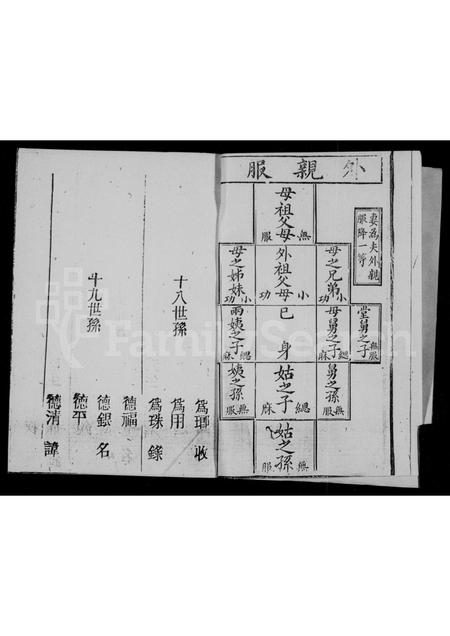 外親服
妻為夫外親
服降一等
母祖父母 無服
外祖父母 小功
己身
姑之子 緦麻
姑之孫 無服
母之兄弟 小功
母舅之子 緦麻
舅之孫 無服
堂舅之子 無服
母之姊妹 小功
兩姨之子 緦麻
姨之孫 無服
為聊 收
為用
為珠 錄
十八世孫
德福
德銀 名
德平
德清 諱
十九世孫
FamilySearch